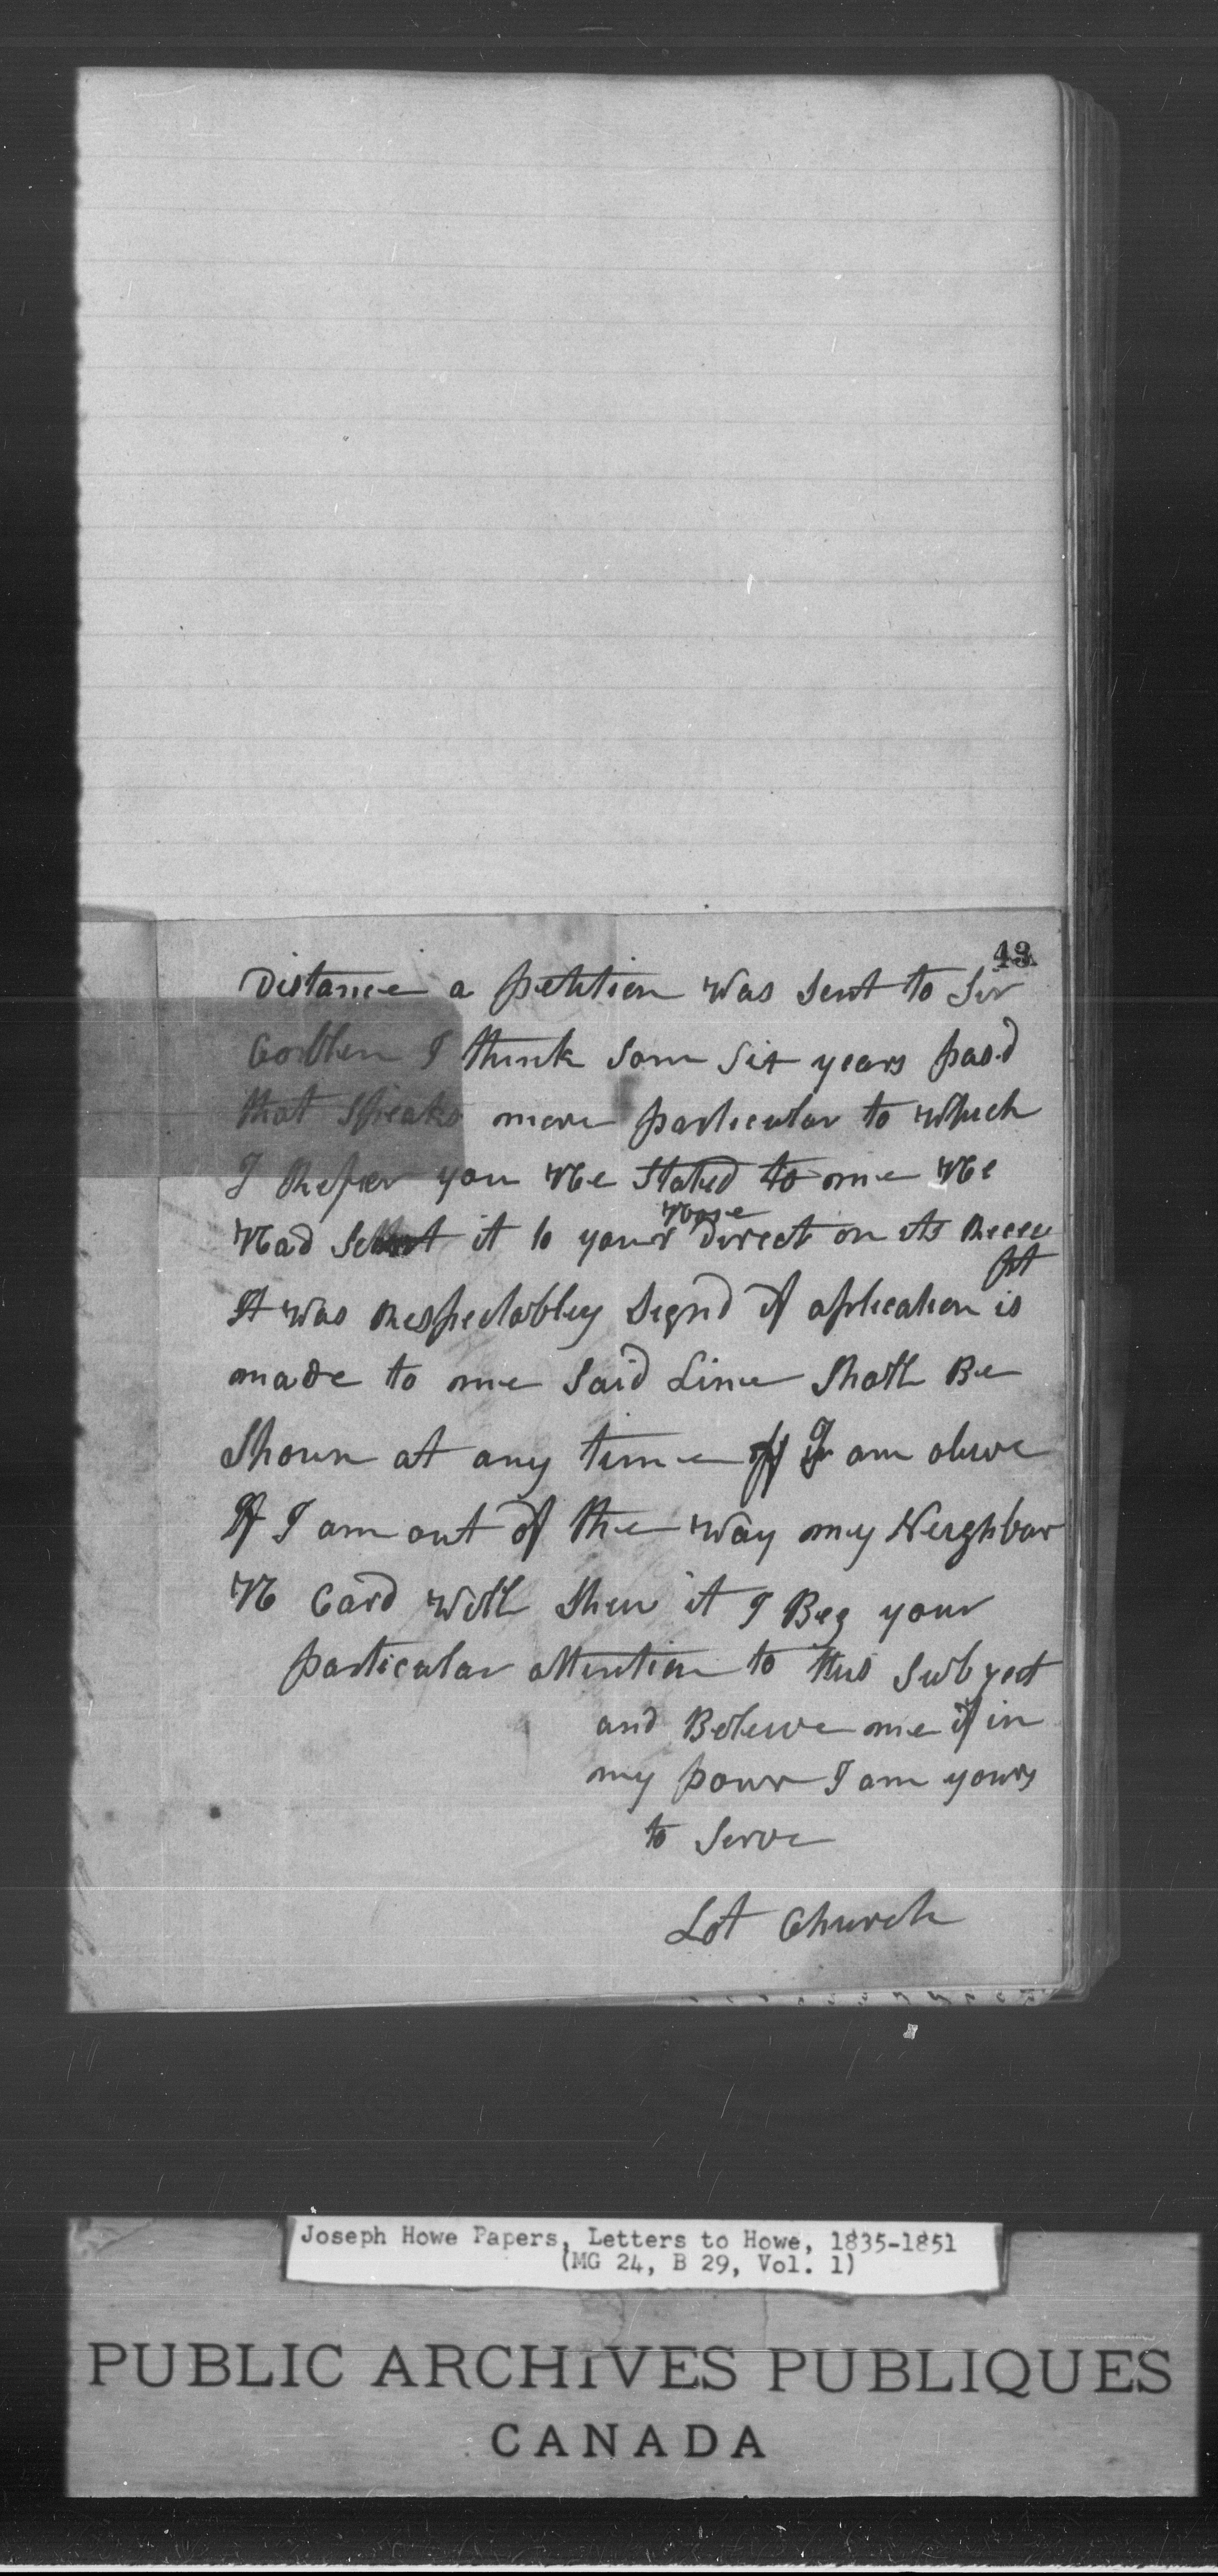 43
Distance a petition was sent to Sir
Corllen I think Som Six years pasd
that Speaks more particular to which
I Refeer you He Stated to me He
Hose
Had Sent it to your direct on its Recee
pt
It was Respectabley Signd if aplication is
made to me Said Line Shall Be
Shown at any time if I am alive
If I am out of the way my Neighbour
H Card will Shew it I Beg your
particular attention to this Subject
and Beleive me if in
my pour I am yours
to Serve
Lot Church
Joseph Howe Papers, Letters to Howe, 1835-1851
(MG 24, B 29, Vol. 1)
PUBLIC ARCHIVES PUBLIQUES
CANADA